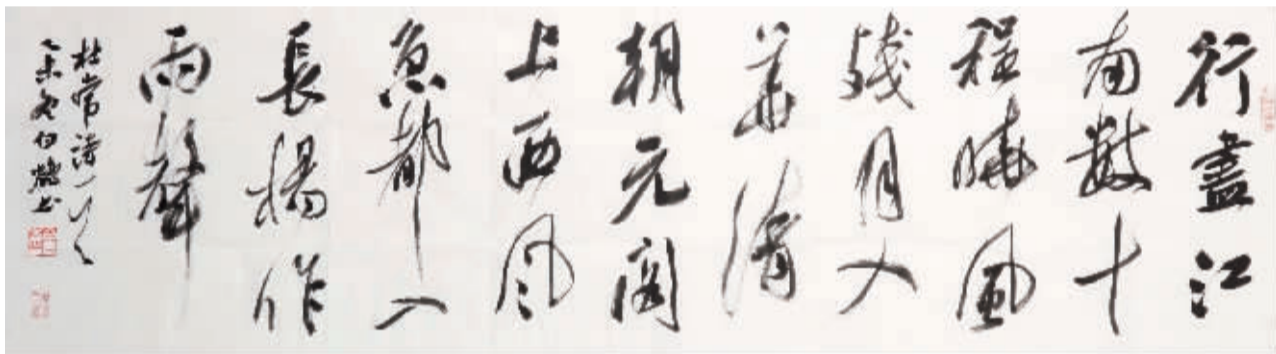 行盡江
南數十
程曉風
殘月入
華清
朝元閣
上西风
急都入
長楊作
雨聲
杜常詩一首
乙未冬白书